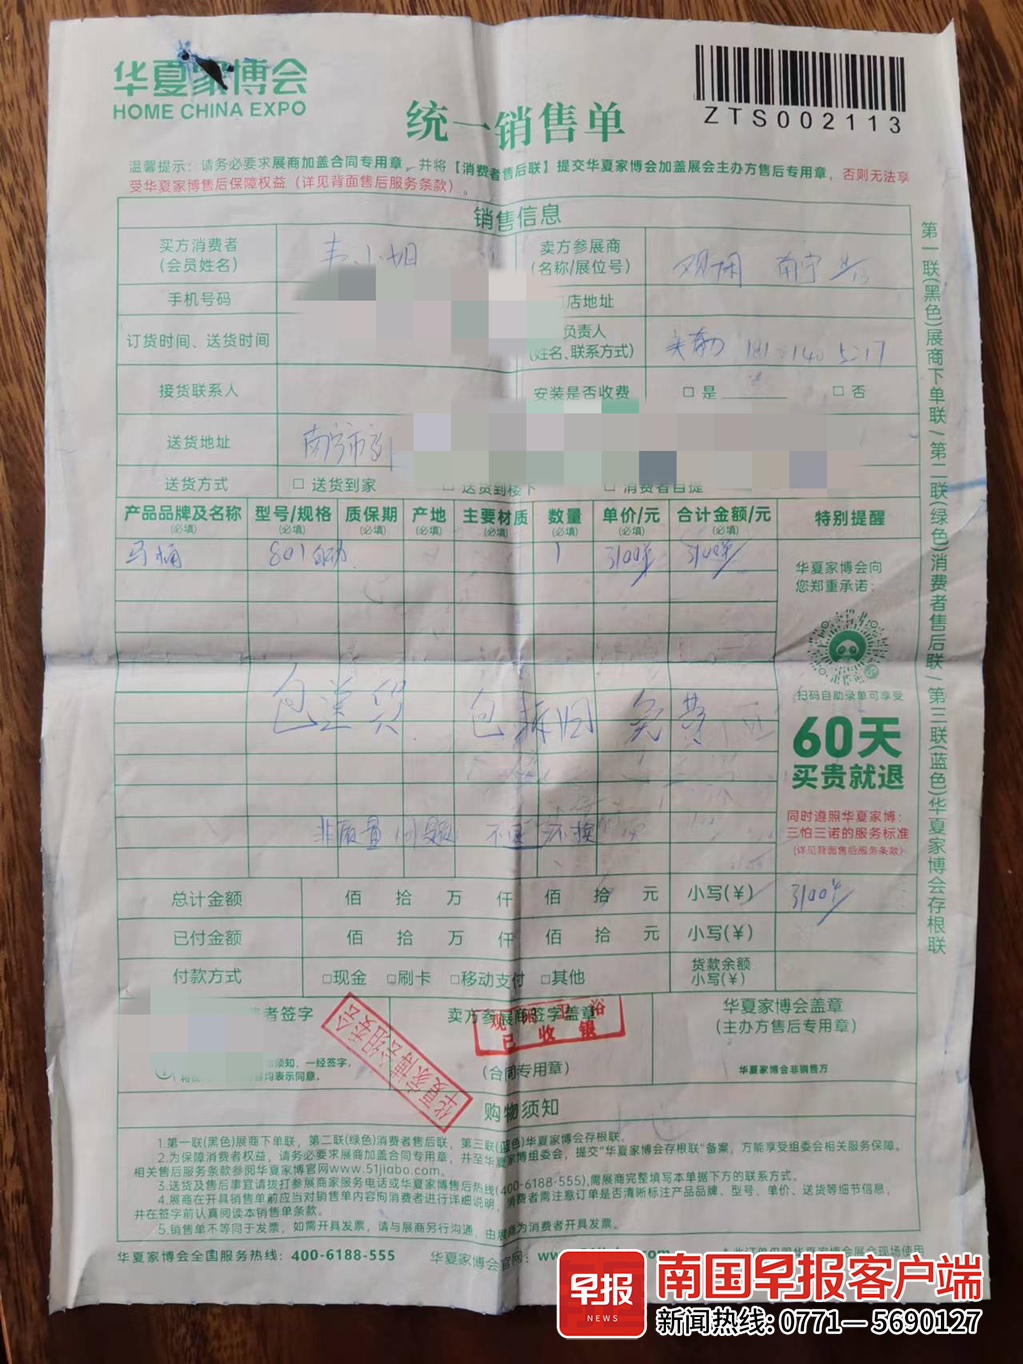 华夏家博会
HOME CHINA EXPO
统一销售单
ZTS002113
温馨提示：请务必要求展商加盖合同专用章，并将【消费者售后联】提交华夏家博会加盖展会主办方售后专用章，否则无法享
受华夏家博售后保障权益（详见背面售后服务条款）。
销售信息
买方消费者
(会员姓名)
韦小姐
卖方参展商
(名称/展位号)
南宁
手机号码
店地址
订货时间、送货时间
负责人
(姓名、联系方式)
接货联系人
安装是否收费
□ 是
□ 否
送货地址
南宁市
送货方式
□ 送货到家
□ 送货到楼下
□ 消费者自提
产品品牌及名称 型号/规格 质保期 产地 主要材质 数量 单价/元 合计金额/元 特别提醒
(必填) (必填) (必填) (必填) (必填) (必填) (必填) (必填)
马桶 801自动 1 3100元 3100元
华夏家博会向
您郑重承诺：
扫码自助录单可享受
60天
买贵就退
同时遵照华夏家博：
三怕三诺的服务标准
(详见背面售后服务条款)
包送货 包拆旧 免费
非质量问题 不退不换
总计金额 佰 拾 万 仟 佰 拾 元 小写(￥) 3100元
已付金额 佰 拾 万 仟 佰 拾 元 小写(￥)
付款方式 □现金 □刷卡 □移动支付 □其他 货款余额
小写(￥)
费者签字
须知，一经签字，
均表示同意。
华夏家博会组委会
卖方参展商签字盖章
已收银
(合同专用章)
华夏家博会盖章
(主办方售后专用章)
华夏家博会非销售方
购物须知
1.第一联(黑色)展商下单联，第二联(绿色)消费者售后联，第三联(蓝色)华夏家博会存根联。
2.为保障消费者权益，请务必要求展商加盖合同专用章，并至华夏家博会组委会，提交“华夏家博会存根联”备案，方能享受组委会相关服务保障。
相关售后服务条款参阅华夏家博官网www.51jiabo.com。
3.送货及售后事宜请拨打参展商家服务电话或华夏家博售后热线(400-6188-555),需展商完整填写本单据下方的联系方式。
4.展商在开具销售单前应当对销售单内容向消费者进行详细说明，消费者需注意订单是否清晰标注产品品牌、型号、单价、送货等细节信息，
并在签字前认真阅读本销售单条款。
5.销售单不等同于发票，如需开具发票，请与展商另行沟通，由展商为消费者开具发票。
华夏家博会全国服务热线：400-6188-555
华夏家博会官网：
第一联(黑色)展商下单联/第二联(绿色)消费者售后联/第三联(蓝色)华夏家博会存根联
早报
NEWS
南国早报客户端
新闻热线：0771—5690127